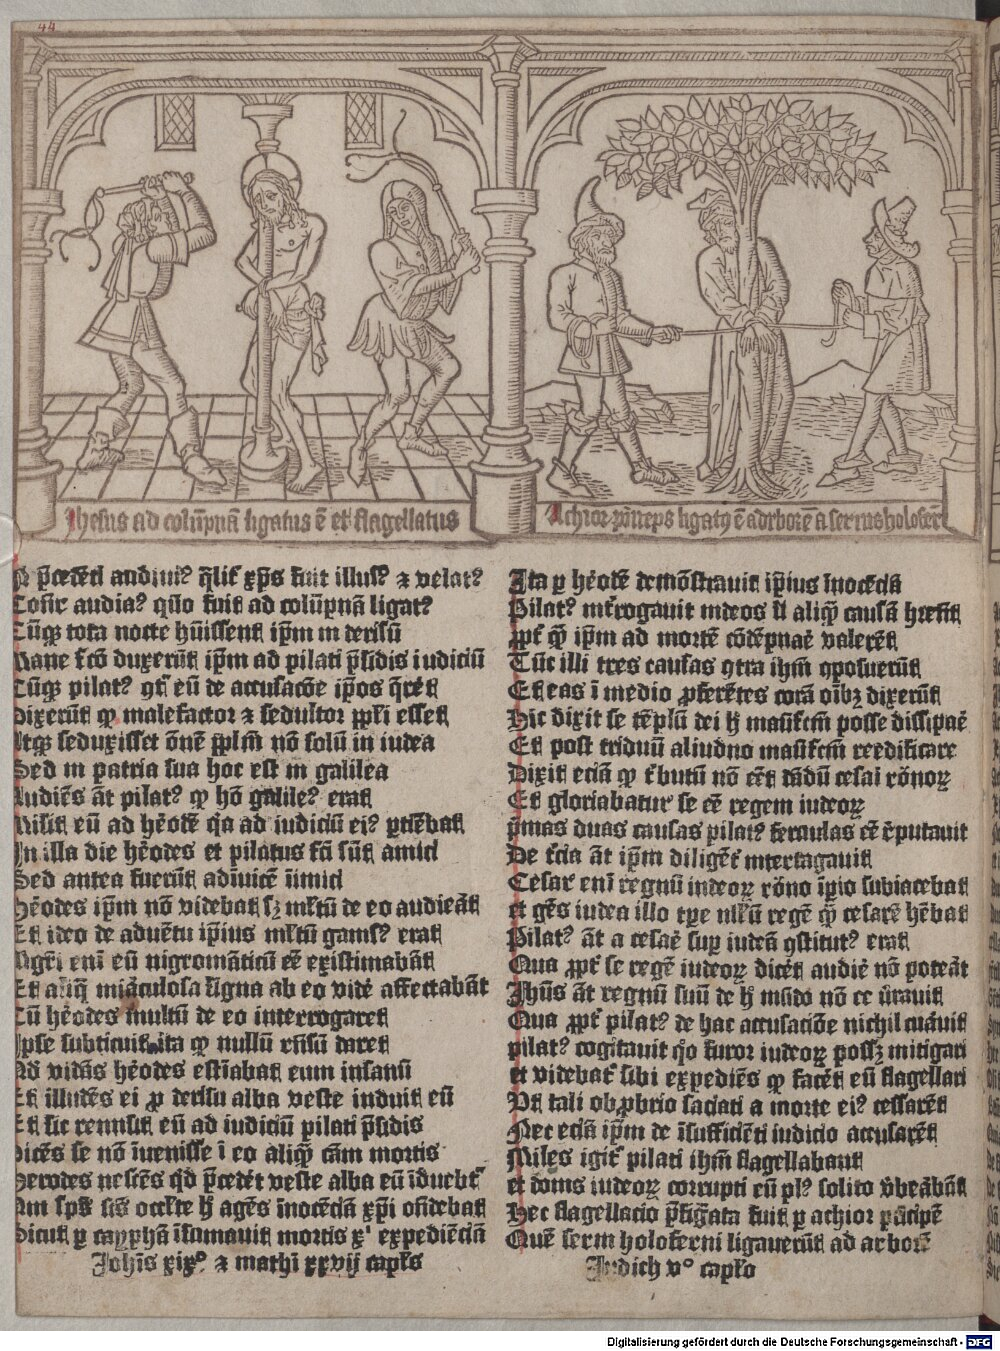 44
Jhesus ad colūpnā ligatus ē et flagellatus
Achior princeps ligatꝰ ē ad arborē a servis holofern̄
p̄cedēti audiuiꝰ q̄lit̄ xp̄s fuit illusꝰ ⁊ velatꝰ
Cōsr̄ audiaꝰ qūo fuit ad colūpnā ligatꝰ
Cūqꝫ tota nocte hūissent ip̄m in derisū
Mane fc̄o duxerūt ip̄m ad pilati p̄sidis iudiciū
Cūqꝫ pilatꝰ eū de accusacōe ip̄os q̄rēt
Dixerūt qꝫ malefactor ⁊ seductor pp̄li esset
Atqꝫ seduxisset ōnē pp̄lm̄ nō solū in iudea
Sed in patria sua hoc est in galilea
Audiēs āt pilatꝰ qꝫ hō galileꝰ erat
Misit eū ad hēodē q̄a ad iudiciū eiꝰ ptīebat
In illa die hēodes et pilatus fc̄i sūt amici
Sed antea fuerūt adīuicē īimici
Hēodes ip̄m nō videbat sꝫ ml̄tū de eo audieāt
Et ideo de aduētu ip̄ius ml̄tū gauisꝰ erat
Magū enī eū nigromāticū cē existimabāt
Et aliq̄ miāculosa signa ab eo vidē affectabāt
Cū hēodes multū de eo interrogaret
Ipse subticuit ita qꝫ nullū rn̄sū daret
Ad vidēs hēodes estīabat eum insanū
Et illudēs ei ꝓ derisu alba veste induit eū
Et sic remisit eū ad iudiciū pilati p̄sidis
Dicēs se nō īuenisse ī eo aliq̄ cām mortis
Herodes nesciēs qd̄ p̄cedēt veste alba eū īduebt̄
Nam sp̄s sc̄s occl̄te hͦ agēs īnocēciā xp̄i on̄debat
Sicut p cayphā īsinuauit mortis xͥ expediēciā
Johīs xixͦ ⁊ mathī xxvij capl̄s
Ita p hēodē demōstrauit ip̄ius īnocēciā
Pilatꝰ īterrogauit iudeos si aliq̄ causā hr̄ēt
ꝓpt̄ q̄ ip̄m ad mortē cōdēpnaē valerēt
Tūc illi tres causas ꝯtra ihm̄ ꝓposuerūt
Et eas ī medio ꝓferētes corā oībꝫ dixerūt
Hic dixit se tēplū dei hͦ manufcm̄ posse dissipaē
Et post triduū aliud nō manufcm̄ reedificare
Dixit eciā qꝫ tͥbutū nō eēt dādū cesari rōnoꝝ
Et gloriabatur se eē regem iudeoꝝ
p̄mas duas causas pilatꝰ friuolas eē reputauit
De tͥcia āt ip̄m diligēt̄ interrogauit
Cesar̄ enī regnū iudeoꝝ rōno īpio subiacebat
et gēs iudea illo tpē nll̄ū regē qꝫ cesarē hēbat
Pilatꝰ āt a cesaē sup iudeā ꝯstitutꝰ erat
Qua ꝓpt̄ se regē iudeoꝝ dicēt audiē nō poteāt
Jhūs āt regnū suū de hͦ mūdo nō eē iurauit
Qua ꝓpt̄ pilatꝰ de hac accusaciōe nichil curauit
pilatꝰ cogitauit qͦo furor iudeoꝝ possꝫ mitigari
et videbat̄ sibi expediēs qꝫ facēt eū flagellari
Vt tali obꝓbrio saciati a morte eiꝰ cessarēt
Nec eciā ip̄m de īsufficiēti iudicio accusarēt
Miles igit̄ pilati ihm̄ flagellabant
et donis iudeoꝝ corrupti eū plꝰ solito vberabāt
Hec flagellacio p̄figata fuit p achior pͥncipē
Quē serui holoferni ligauerūt ad arborē
Judich vͦ capl̄o
Digitalisierung gefördert durch die Deutsche Forschungsgemeinschaft - DFG